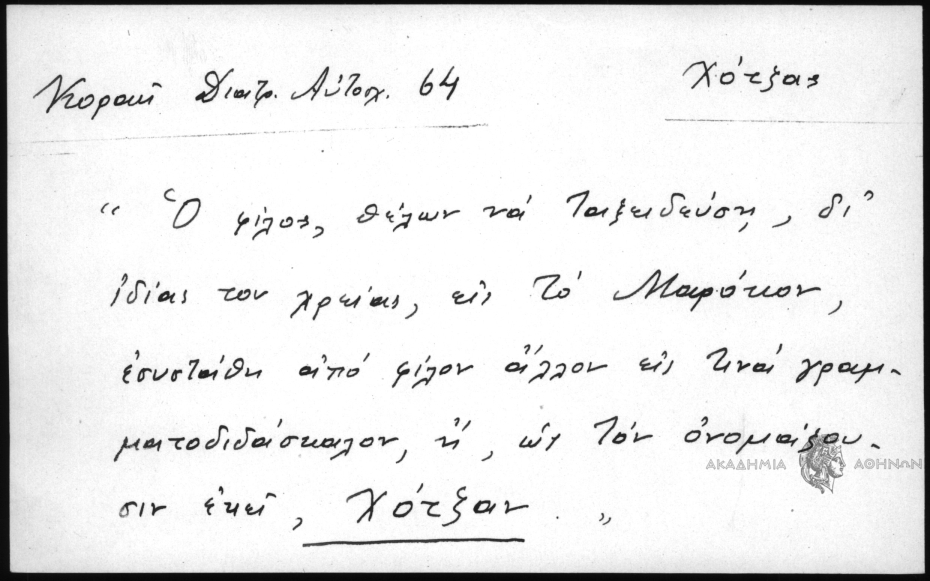 Κοραῆ Διατρ. Αὐτοσχ. 64
Χότζας
“ Ὁ φίλος, θέλων νά ταξειδεύσῃ, δι’
ἰδίας του χρείας, εἰς τό Μαρόκον,
ἐσυστάθη ἀπό φίλον ἄλλον εἰς τινά γραμ-
ματοδιδάσκαλον, ἤ, ὡς τόν ὀνομάζου-
ΑΚΑΔΗΜΙΑ ΑΘΗΝΩΝ
σιν ἐκεῖ, Χότζαν. „